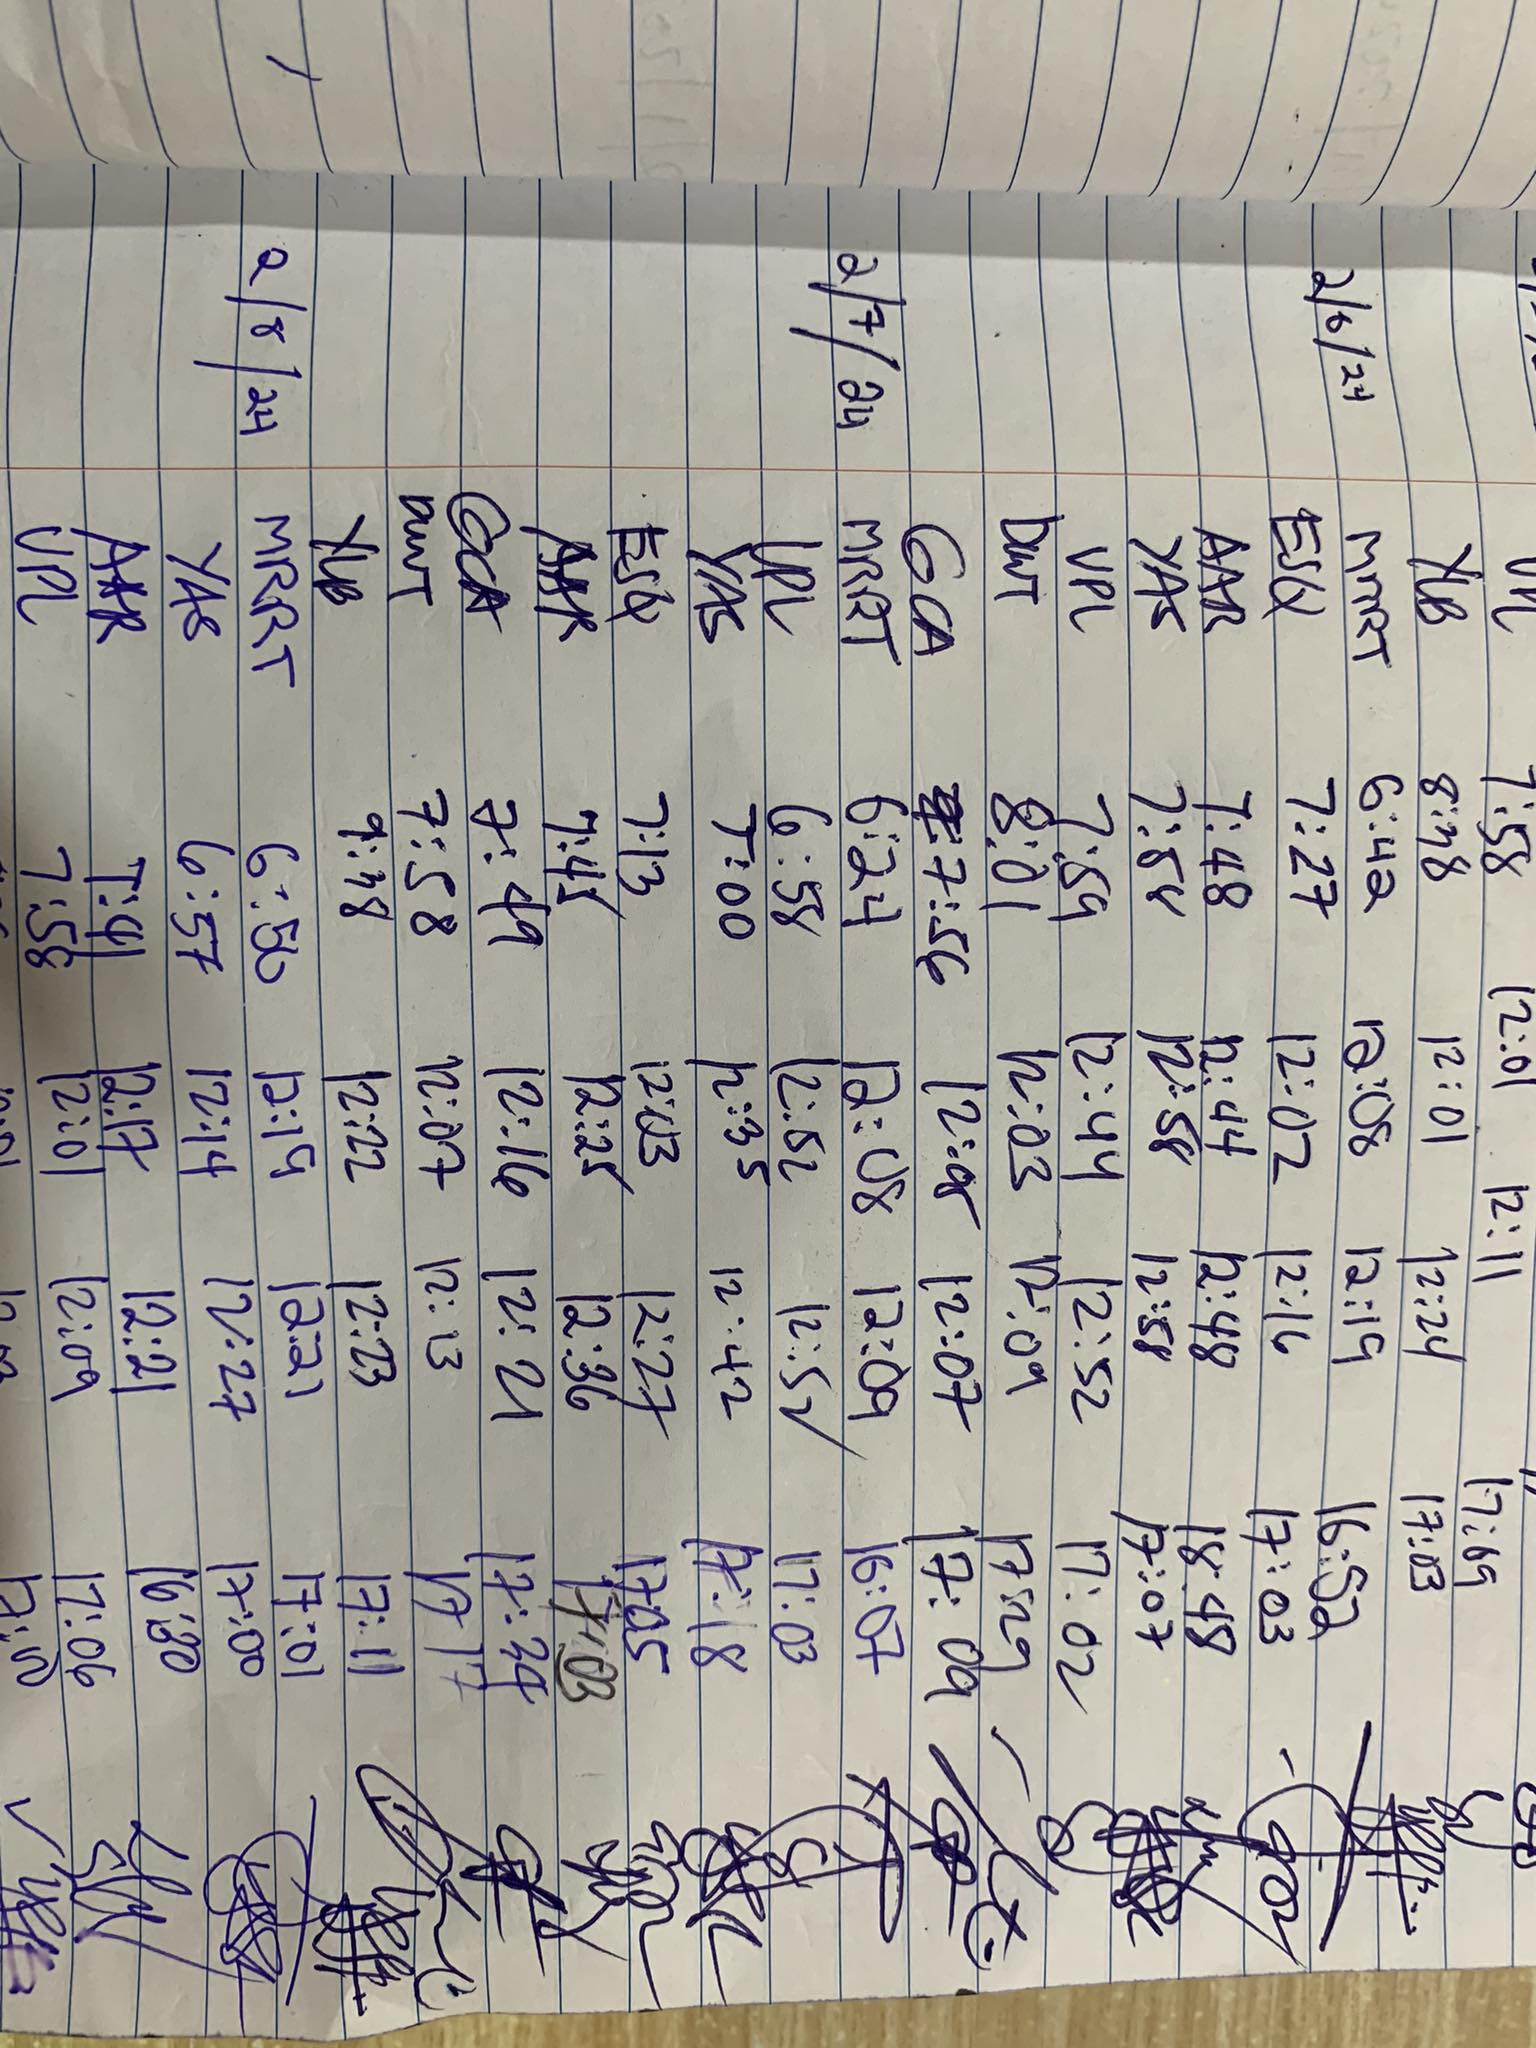 UPL 7:58 12:01 12:11 17:09
YLB 8:38 12:01 12:24 17:03
2/6/24 MRRT 6:42 12:08 12:19 16:52
ESQ 7:27 12:02 12:16 17:03
AAR 7:48 12:44 12:48 18:48
YAS 7:54 12:58 12:58 17:07
UPL 7:59 12:44 12:52 17:02
DWT 8:01 12:03 12:09 17:29
GCA 7:56 12:05 12:07 17:09
2/7/24 MRRT 6:24 12:08 12:09 16:07
UPL 6:58 12:52 12:52 17:03
YAS 7:00 12:35 12:42 17:18
ESQ 7:13 12:03 12:27 17:05
AAR 7:45 12:25 12:36 17:03
GCA 7:49 12:16 12:21 17:24
DWT 7:58 12:07 12:13 17 17
YLB 9:48 12:22 12:23 17:11
2/8/24 MRRT 6:50 12:19 12:21 17:01
YAS 6:57 12:14 12:27 17:00
AAR 7:41 12:17 12:21 16:30
UPL 7:58 12:01 12:09 17:06